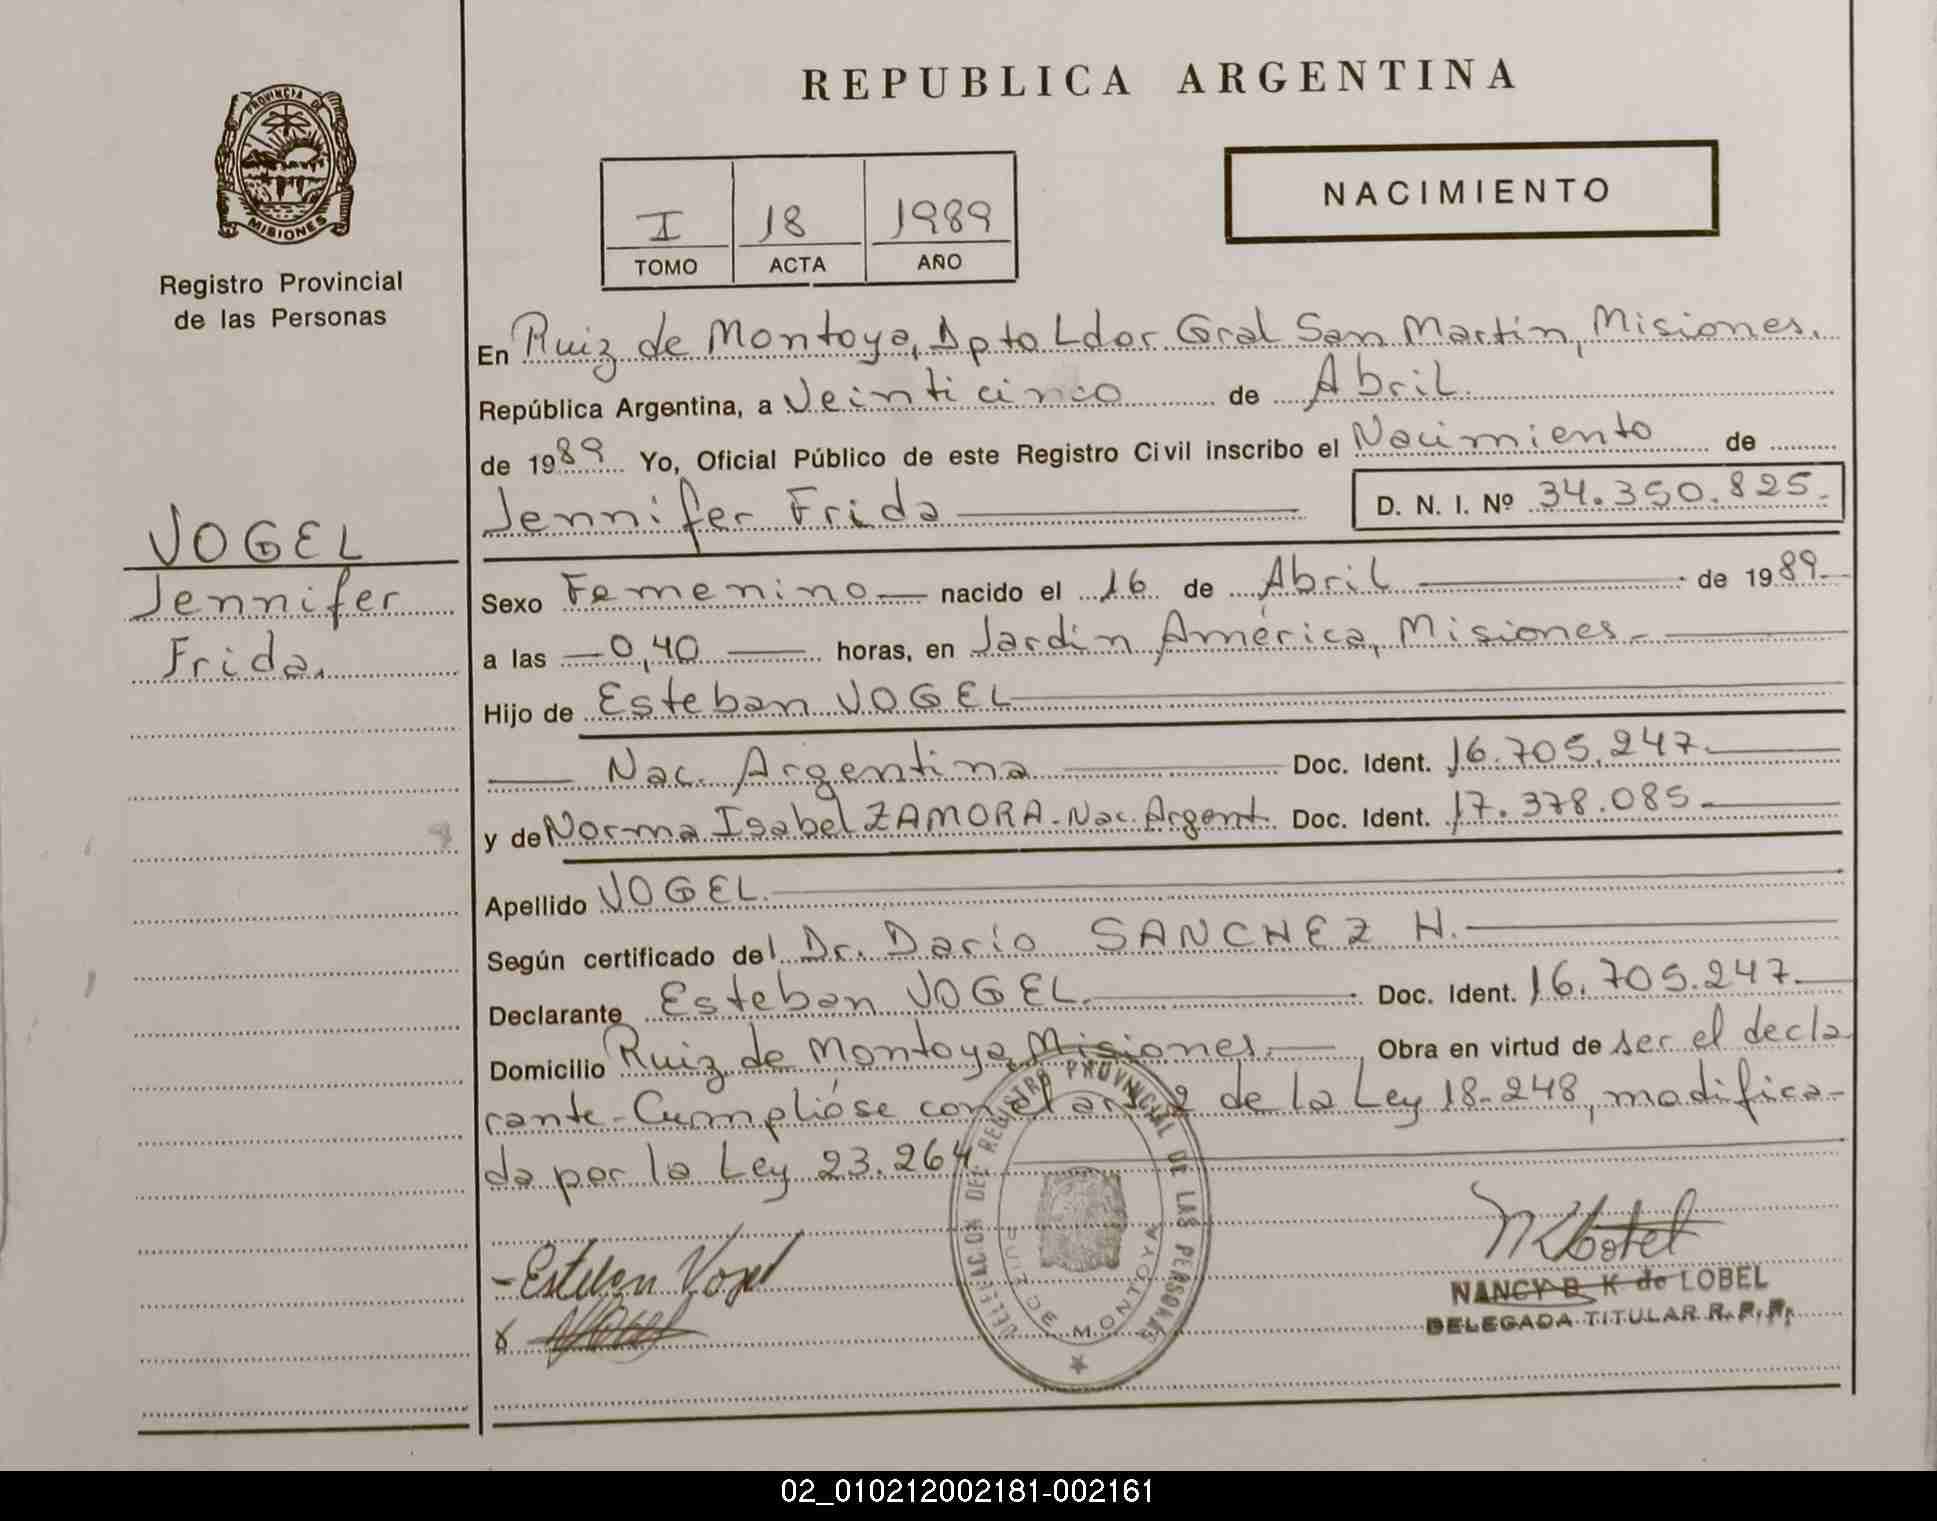 REPUBLICA ARGENTINA
PROVINCIA DE
MISIONES
Registro Provincial
de las Personas
I 18 1989
TOMO ACTA AÑO
NACIMIENTO
VOGEL
Jennifer
Frida.
En Ruiz de Montoya, Dpto Ldor Gral San Martín, Misiones.
República Argentina, a Veinticinco de Abril.
de 1989 Yo, Oficial Público de este Registro Civil inscribo el Nacimiento de
Jennifer Frida D. N. I. Nº 34.350.825.
Sexo Femenino nacido el 16 de Abril de 1989
a las 0,40 horas, en Jardín América, Misiones.
Hijo de Esteban VOGEL
Nac. Argentina Doc. Ident. 16.705.247.
y de Norma Isabel ZAMORA - Nac. Argent. Doc. Ident. 17.378.085
Apellido VOGEL.
Según certificado del Dr. Darío SANCHEZ H.
Declarante Esteban VOGEL. Doc. Ident. 16.705.247
Domicilio Ruiz de Montoya, Misiones. Obra en virtud de ser el decla
rante - Cumplióse con el art 2 de la Ley 18.248, modifica-
da por la Ley 23.264
- Esteban Vogel
DELEGACION DEL REGISTRO PROVINCIAL DE LAS PERSONAS
RUIZ DE MONTOYA
NANCY B. K de LOBEL
DELEGADA TITULAR R. P. P.
02_010212002181-002161